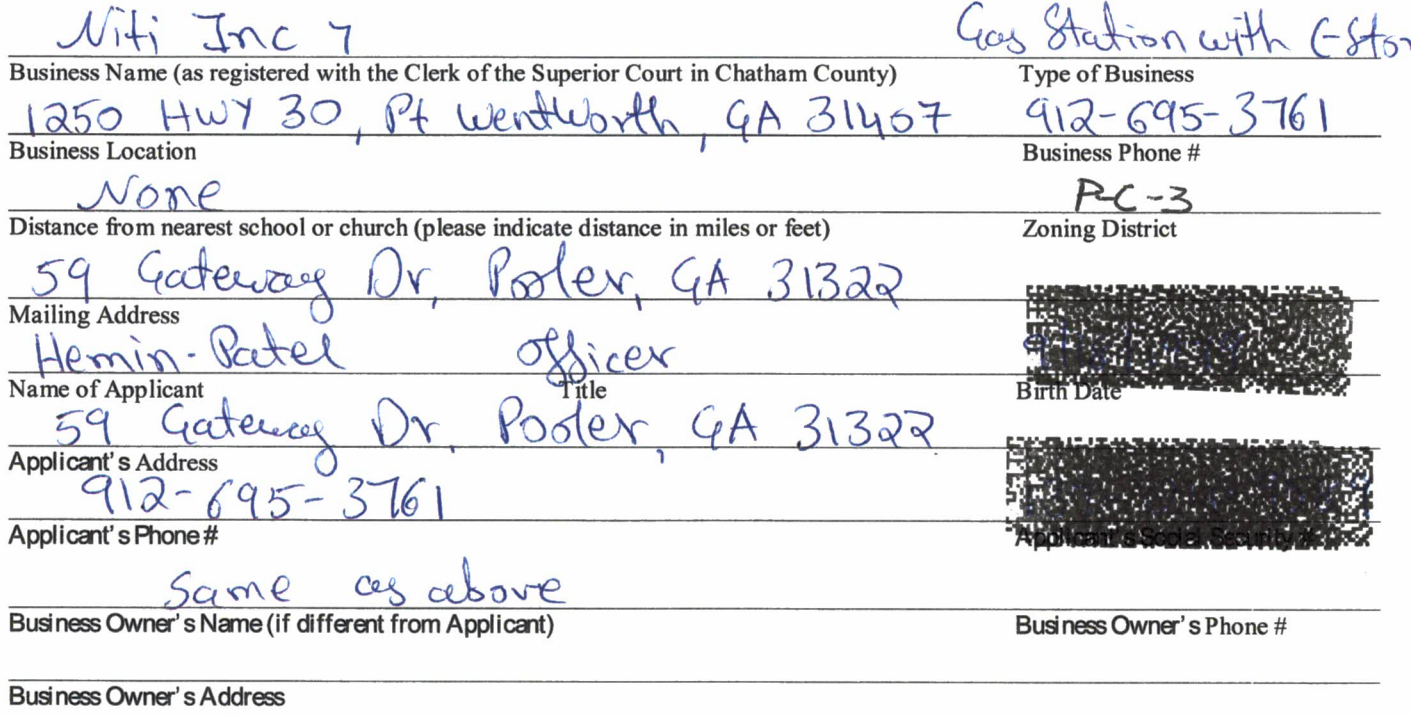 Niti Inc 7 Gas Station with C-Stor
Business Name (as registered with the Clerk of the Superior Court in Chatham County) Type of Business
1250 HWY 30, Pt Wentworth, GA 31407 912-695-3761
Business Location Business Phone #
None P-C-3
Distance from nearest school or church (please indicate distance in miles or feet) Zoning District
59 Gateway Dr, Pooler, GA 31322
Mailing Address
Hemin Patel officer
Name of Applicant Title Birth Date
59 Gateway Dr, Pooler, GA 31322
Applicant's Address
912-695-3761
Applicant's Phone # Applicant's Social Security #
Same as above
Business Owner's Name (if different from Applicant) Business Owner's Phone #
Business Owner's Address